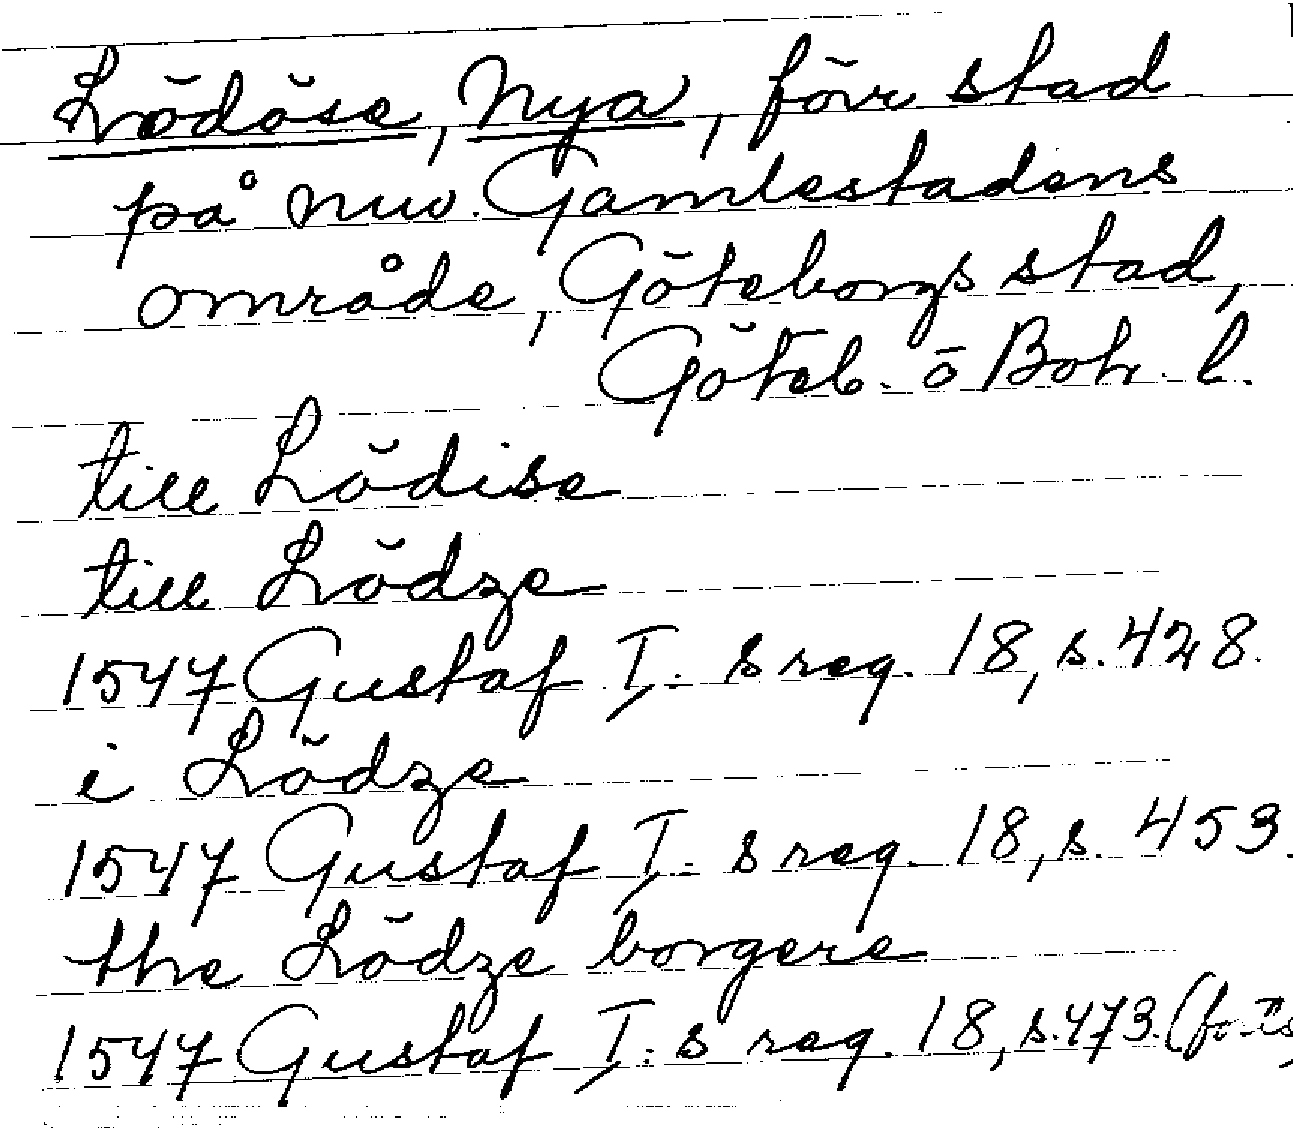 Lödöse, Nya, förr stad
på nuv. Gamlestadens
område, Göteborgs stad,
Göteb. o Boh. l.
till Lödise
till Lödze
1547 Gustaf I:s reg. 18, s. 428.
i Lödze
1547 Gustaf I:s reg. 18, s. 453.
the Lödze borgere
1547 Gustaf I:s reg. 18, s. 473.